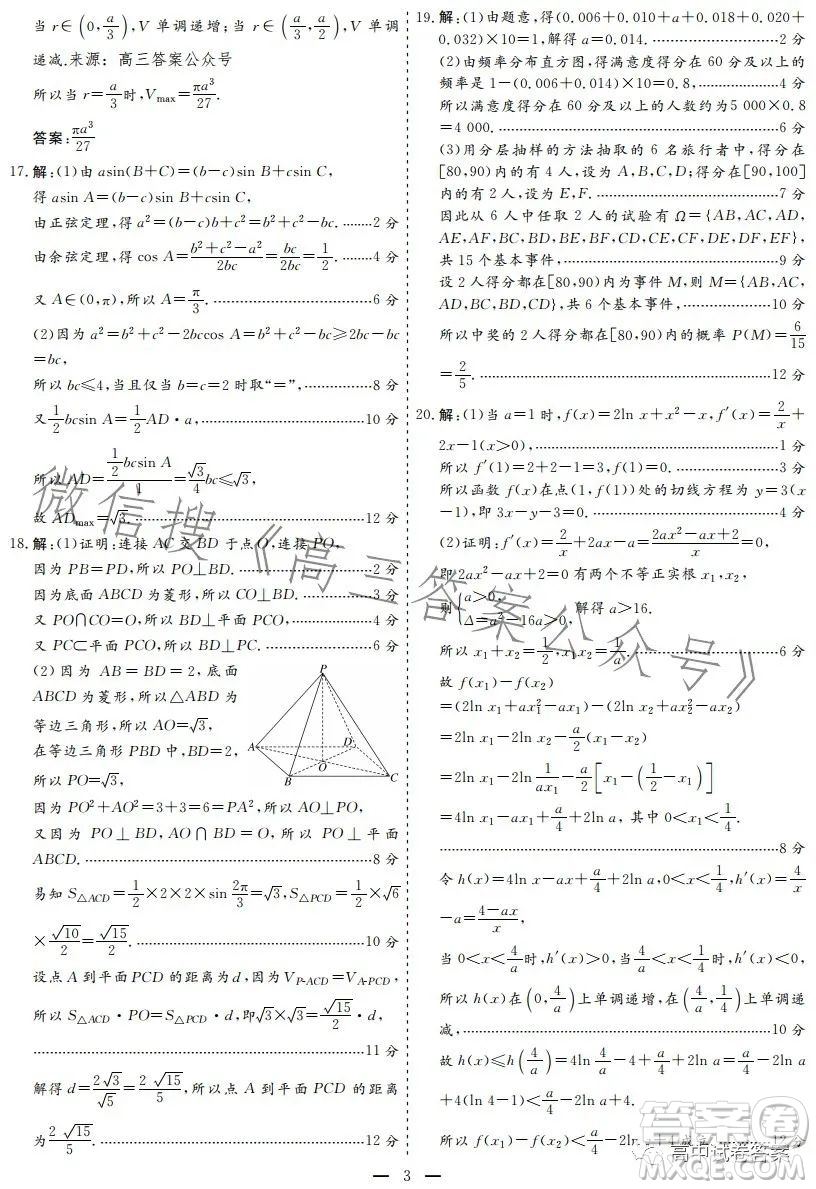 当 r∈(0, a/3), V 单调递增; 当 r∈(a/3, a/2), V 单调
递减.来源：高三答案公众号
所以当 r=a/3时, Vmax=πa³/27.
答案:πa³/27
17.解:(1)由 asin(B+C)=(b-c)sin B+csin C,
得 asin A=(b-c)sin B+csin C,
由正弦定理,得 a²=(b-c)b+c²=b²+c²-bc. ……2 分
由余弦定理,得 cos A=(b²+c²-a²)/2bc=bc/2bc=1/2. ……4 分
又 A∈(0,π),所以 A=π/3. ……6 分
(2)因为 a²=b²+c²-2bccos A=b²+c²-bc≥2bc-bc
=bc,
所以 bc≤4,当且仅当 b=c=2 时取“=”, ……8 分
又1/2bcsin A=1/2AD·a, ……10 分
所以 AD=(1/2bcsin A)/1=√3/4bc≤√3,
故 ADmax=√3. ……12 分
18.解:(1)证明:连接 AC 交 BD 于点 O,连接 PO,
因为 PB=PD,所以 PO⊥BD. ……2 分
因为底面 ABCD 为菱形,所以 CO⊥BD. ……3 分
又 PO∩CO=O,所以 BD⊥平面 PCO, ……4 分
又 PC⊂平面 PCO,所以 BD⊥PC. ……6 分
(2)因为 AB=BD=2,底面
ABCD 为菱形,所以△ABD 为
等边三角形,所以 AO=√3,
在等边三角形 PBD 中,BD=2,
所以 PO=√3,
P
A
D
O
B
C
因为 PO²+AO²=3+3=6=PA²,所以 AO⊥PO,
又因为 PO⊥BD,AO∩BD=O,所以 PO⊥平面
ABCD. ……8 分
易知 S△ACD=1/2×2×2×sin 2π/3=√3,S△PCD=1/2×√6
×√10/2=√15/2. ……10 分
设点 A 到平面 PCD 的距离为 d,因为 VP-ACD=VA-PCD,
所以 S△ACD·PO=S△PCD·d,即√3×√3=√15/2·d,
……11 分
解得 d=2√3/√5=2√15/5,所以点 A 到平面 PCD 的距离
为2√15/5. ……12 分
19.解:(1)由题意,得(0.006+0.010+a+0.018+0.020+
0.032)×10=1,解得 a=0.014. ……2 分
(2)由频率分布直方图,得满意度得分在 60 分及以上的
频率是 1-(0.006+0.014)×10=0.8, ……4 分
所以满意度得分在 60 分及以上的人数约为 5 000×0.8
=4 000. ……6 分
(3)用分层抽样的方法抽取的 6 名旅行者中,得分在
[80,90)内的有 4 人,设为 A,B,C,D;得分在[90,100]
内的有 2 人,设为 E,F. ……7 分
因此从 6 人中任取 2 人的试验有 Ω={AB,AC,AD,
AE,AF,BC,BD,BE,BF,CD,CE,CF,DE,DF,EF},
共 15 个基本事件, ……9 分
设 2 人得分都在[80,90)内为事件 M,则 M={AB,AC,
AD,BC,BD,CD},共 6 个基本事件, ……10 分
所以中奖的 2 人得分都在[80,90)内的概率 P(M)=6/15
=2/5. ……12 分
20.解:(1)当 a=1 时,f(x)=2ln x+x²-x,f′(x)=2/x+
2x-1(x>0), ……1 分
所以 f′(1)=2+2-1=3,f(1)=0.
所以函数 f(x)在点(1,f(1))处的切线方程为 y=3(x
-1),即 3x-y-3=0. ……4 分
(2)证明:f′(x)=2/x+2ax-a=(2ax²-ax+2)/x=0,
即 2ax²-ax+2=0 有两个不等正实根 x₁,x₂,
则{a>0, Δ=a²-16a>0, 解得 a>16.
所以 x₁+x₂=1/2,x₁x₂=1/a. ……6 分
故 f(x₁)-f(x₂)
=(2ln x₁+ax₁²-ax₁)-(2ln x₂+ax₂²-ax₂)
=2ln x₁-2ln x₂-a/2(x₁-x₂)
=2ln x₁-2ln 1/ax₁-a/2[x₁-(1/2-x₁)]
=4ln x₁-ax₁+a/4+2ln a, 其中 0<x₁<1/4.
……8 分
令 h(x)=4ln x-ax+a/4+2ln a,0<x<1/4,h′(x)=4/x
-a=(4-ax)/x,
当 0<x<4/a时,h′(x)>0,当4/a<x<1/4时,h′(x)<0,
所以 h(x)在(0,4/a)上单调递增,在(4/a,1/4)上单调递
减, ……10 分
故 h(x)≤h(4/a)=4ln 4/a-4+a/4+2ln a=a/4-2ln a
+4(ln 4-1)<a/4-2ln a+4.
所以 f(x₁)-f(x₂)<a/4-2ln a+4 ……12 分
3
微信搜《高三答案公众号》
高中试卷答案
答案圈
MXQE.COM